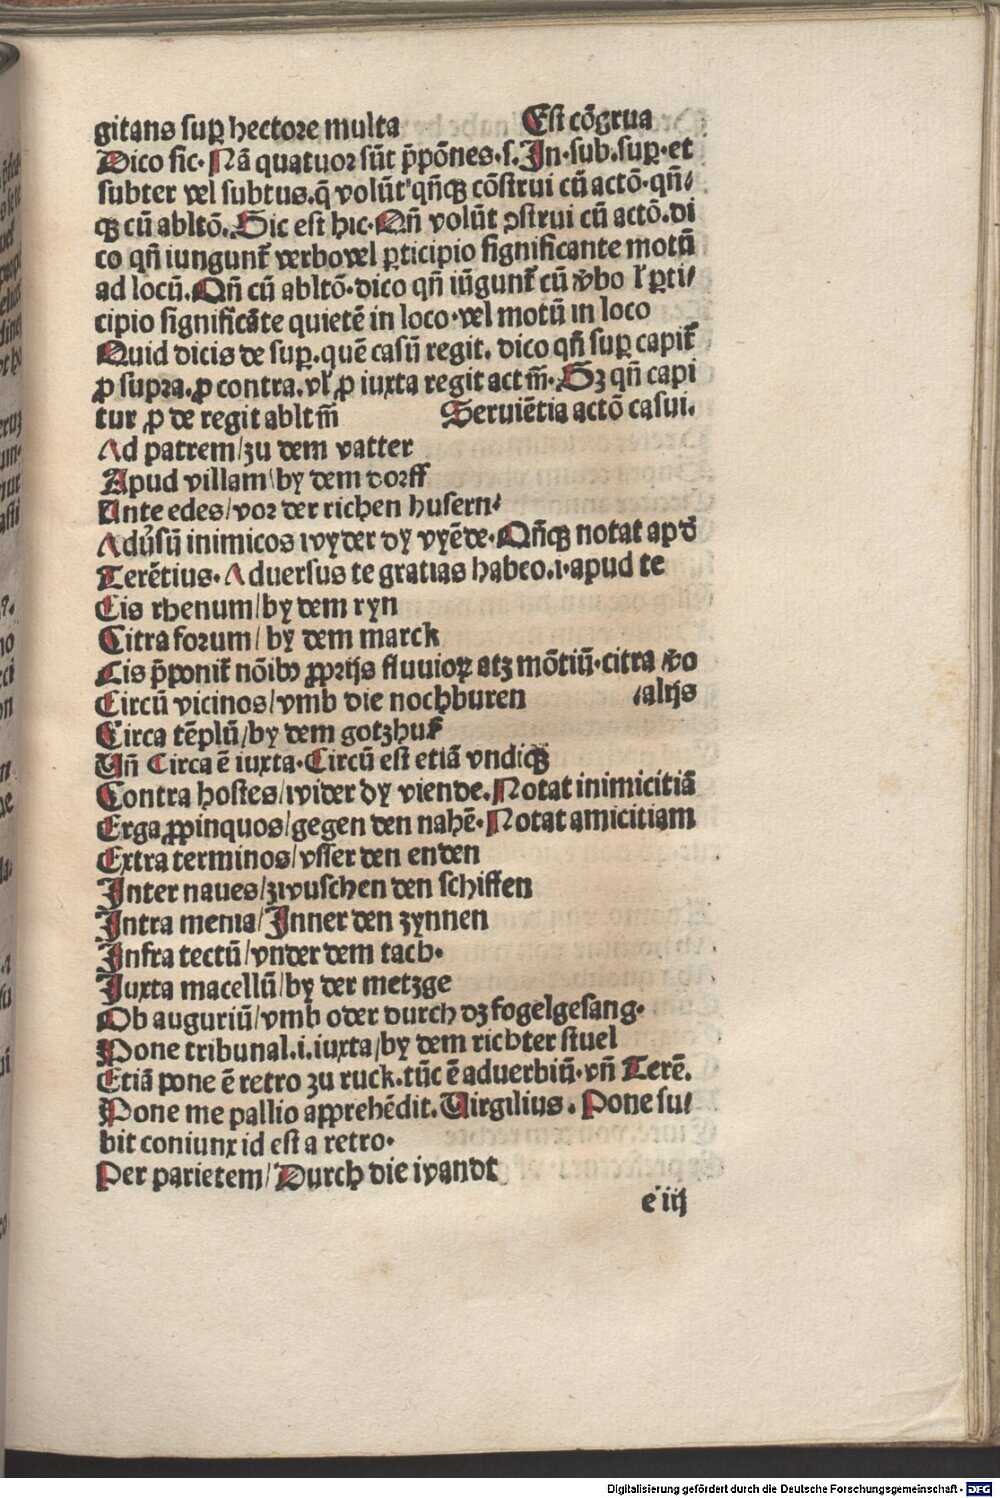 gitans suꝑ hectore multa Est cõgrua
Dico sic. Nã quatuor sũt p̃põnes.s. In.sub.suꝑ.et
subter vel subtus.q̃ volũt qñqꝫ cõstrui cũ actõ.qñ/
qꝫ cũ abltõ. Sic est hic. Qñ volũt ꝯstrui cũ actõ.di
co qñ iungunt̃ verbo vel ꝑticipio significante motũ
ad locũ. Qñ cũ abltõ.dico qñ iũgunt̃ cũ v̾bo ł ꝑti/
cipio significãte quietẽ in loco.vel motũ in loco
Quid dicis de suꝑ.quẽ casũ regit. dico qñ suꝑ capit̃
ꝓ supra.ꝓ contra.vł ꝓ iuxta regit act m̃. Sꝫ qñ capi
tur ꝓ de regit ablt m̃ Seruiẽtia actõ casui.
Ad patrem/zu dem vatter
Apud villam/by dem dorff
Ante edes/vor der richen husern/
Adũsũ inimicos wyder dy vyẽde. Qñqꝫ notat apď
Terẽtius. Aduersus te gratias habeo.i.apud te
Cis rhenum/by dem ryn
Citra forum/by dem marck
Cis p̃ponit̃ nõibꝫ ꝓprijs fluuioꝝ atꝫ mõtiũ.citra v̾o
Circũ vicinos/vmb die nochburen /alijs
Circa tẽplũ/by dem gotzhuß
Vñ Circa ẽ iuxta. Circũ est etiã vndiqꝫ
Contra hostes/wider dy viende. Notat inimicitiã
Erga ꝓpinquos/gegen den nahẽ. Notat amicitiam
Extra terminos/vsser den enden
Inter naues/zwuschen den schiffen
Intra menia/Inner den zynnen
Infra tectũ/vnder dem tach.
Iuxta macellũ/by der metzge
Ob auguriũ/vmb oder durch dz fogelgesang.
Pone tribunal.i.iuxta/by dem richter stuel
Etiã pone ẽ retro zu ruck.tũc ẽ aduerbiũ.vñ Terẽ.
Pone me pallio apprehẽdit. Virgilius. Pone su/
bit coniunx id est a retro.
Per parietem/Durch die wandt
e iij
Digitalisierung gefördert durch die Deutsche Forschungsgemeinschaft - DFG